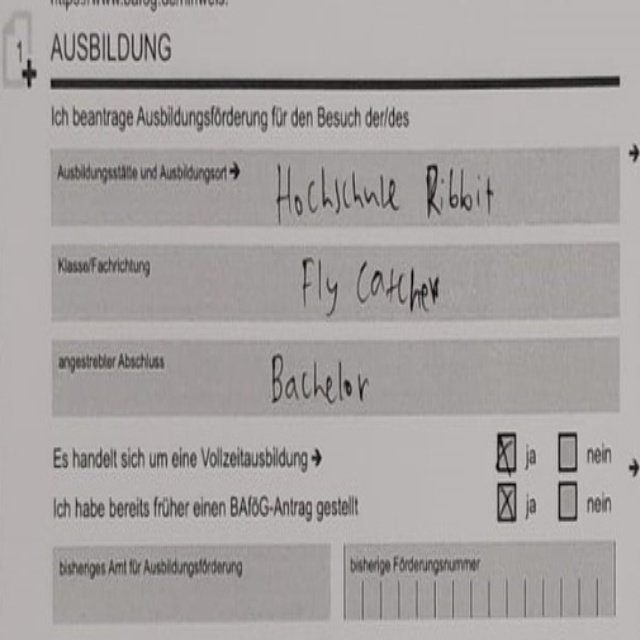 1
AUSBILDUNG
Ich beantrage Ausbildungsförderung für den Besuch der/des
Ausbildungsstätte und Ausbildungsort → Hochschule Ribbit
Klasse/Fachrichtung Fly Catcher
angestrebter Abschluss Bachelor
Es handelt sich um eine Vollzeitausbildung → ja nein
Ich habe bereits früher einen BAföG-Antrag gestellt ja nein
bisheriges Amt für Ausbildungsförderung bisherige Förderungsnummer